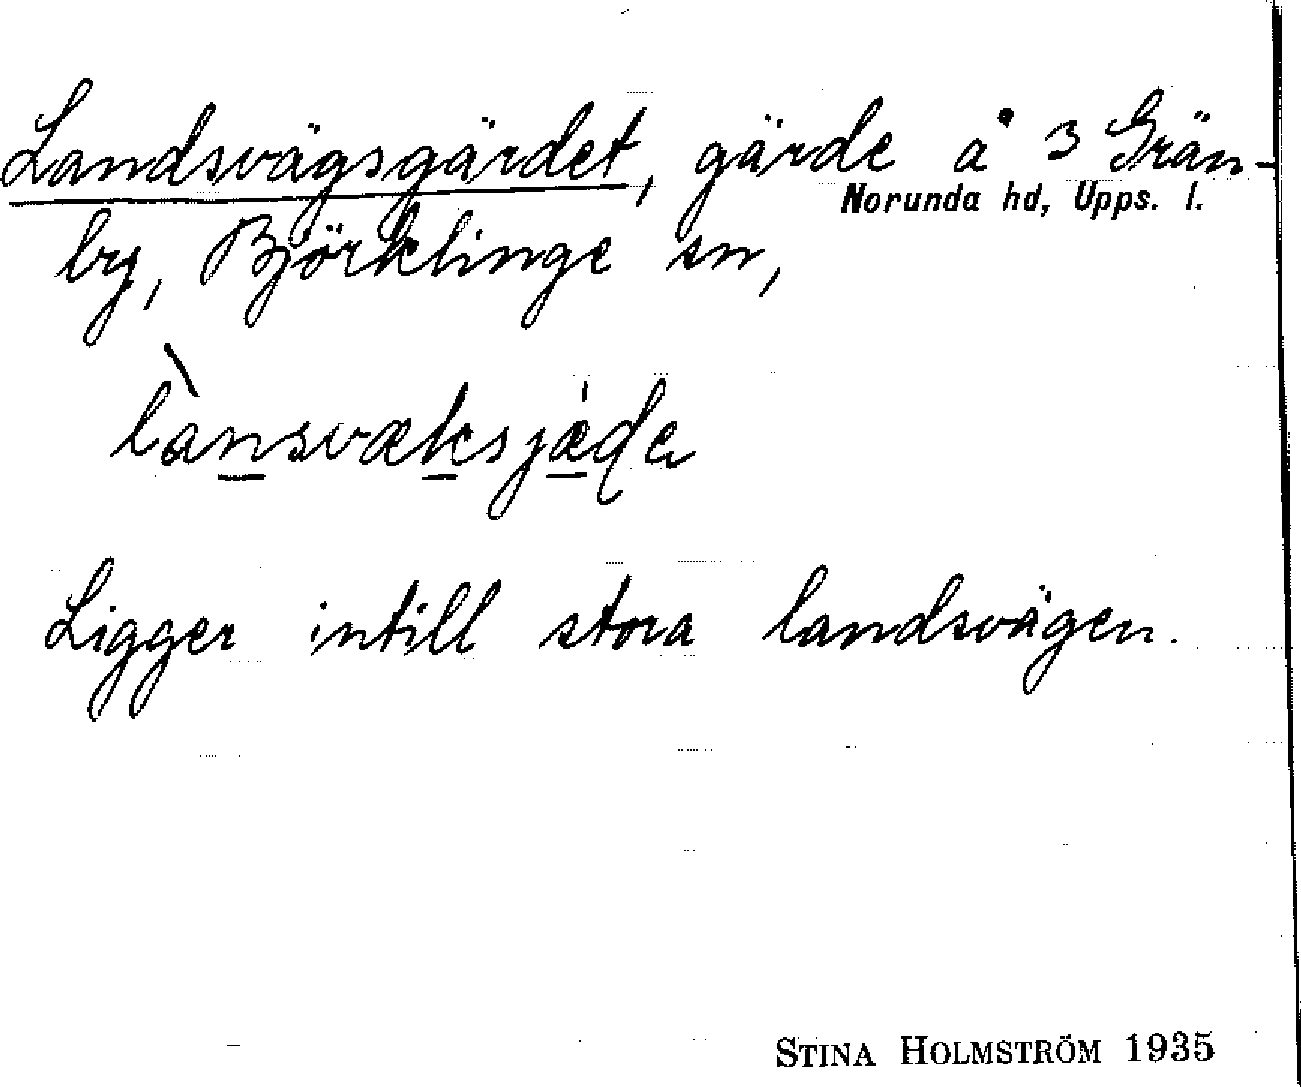 Landsvägsgärdet, gärde å 3 Grän-
Norunda hd, Upps. l.
by, Björklinge sn,
lànsvæksjæ̀de
Ligger intill stora landsvägen.
STINA HOLMSTRÖM 1935